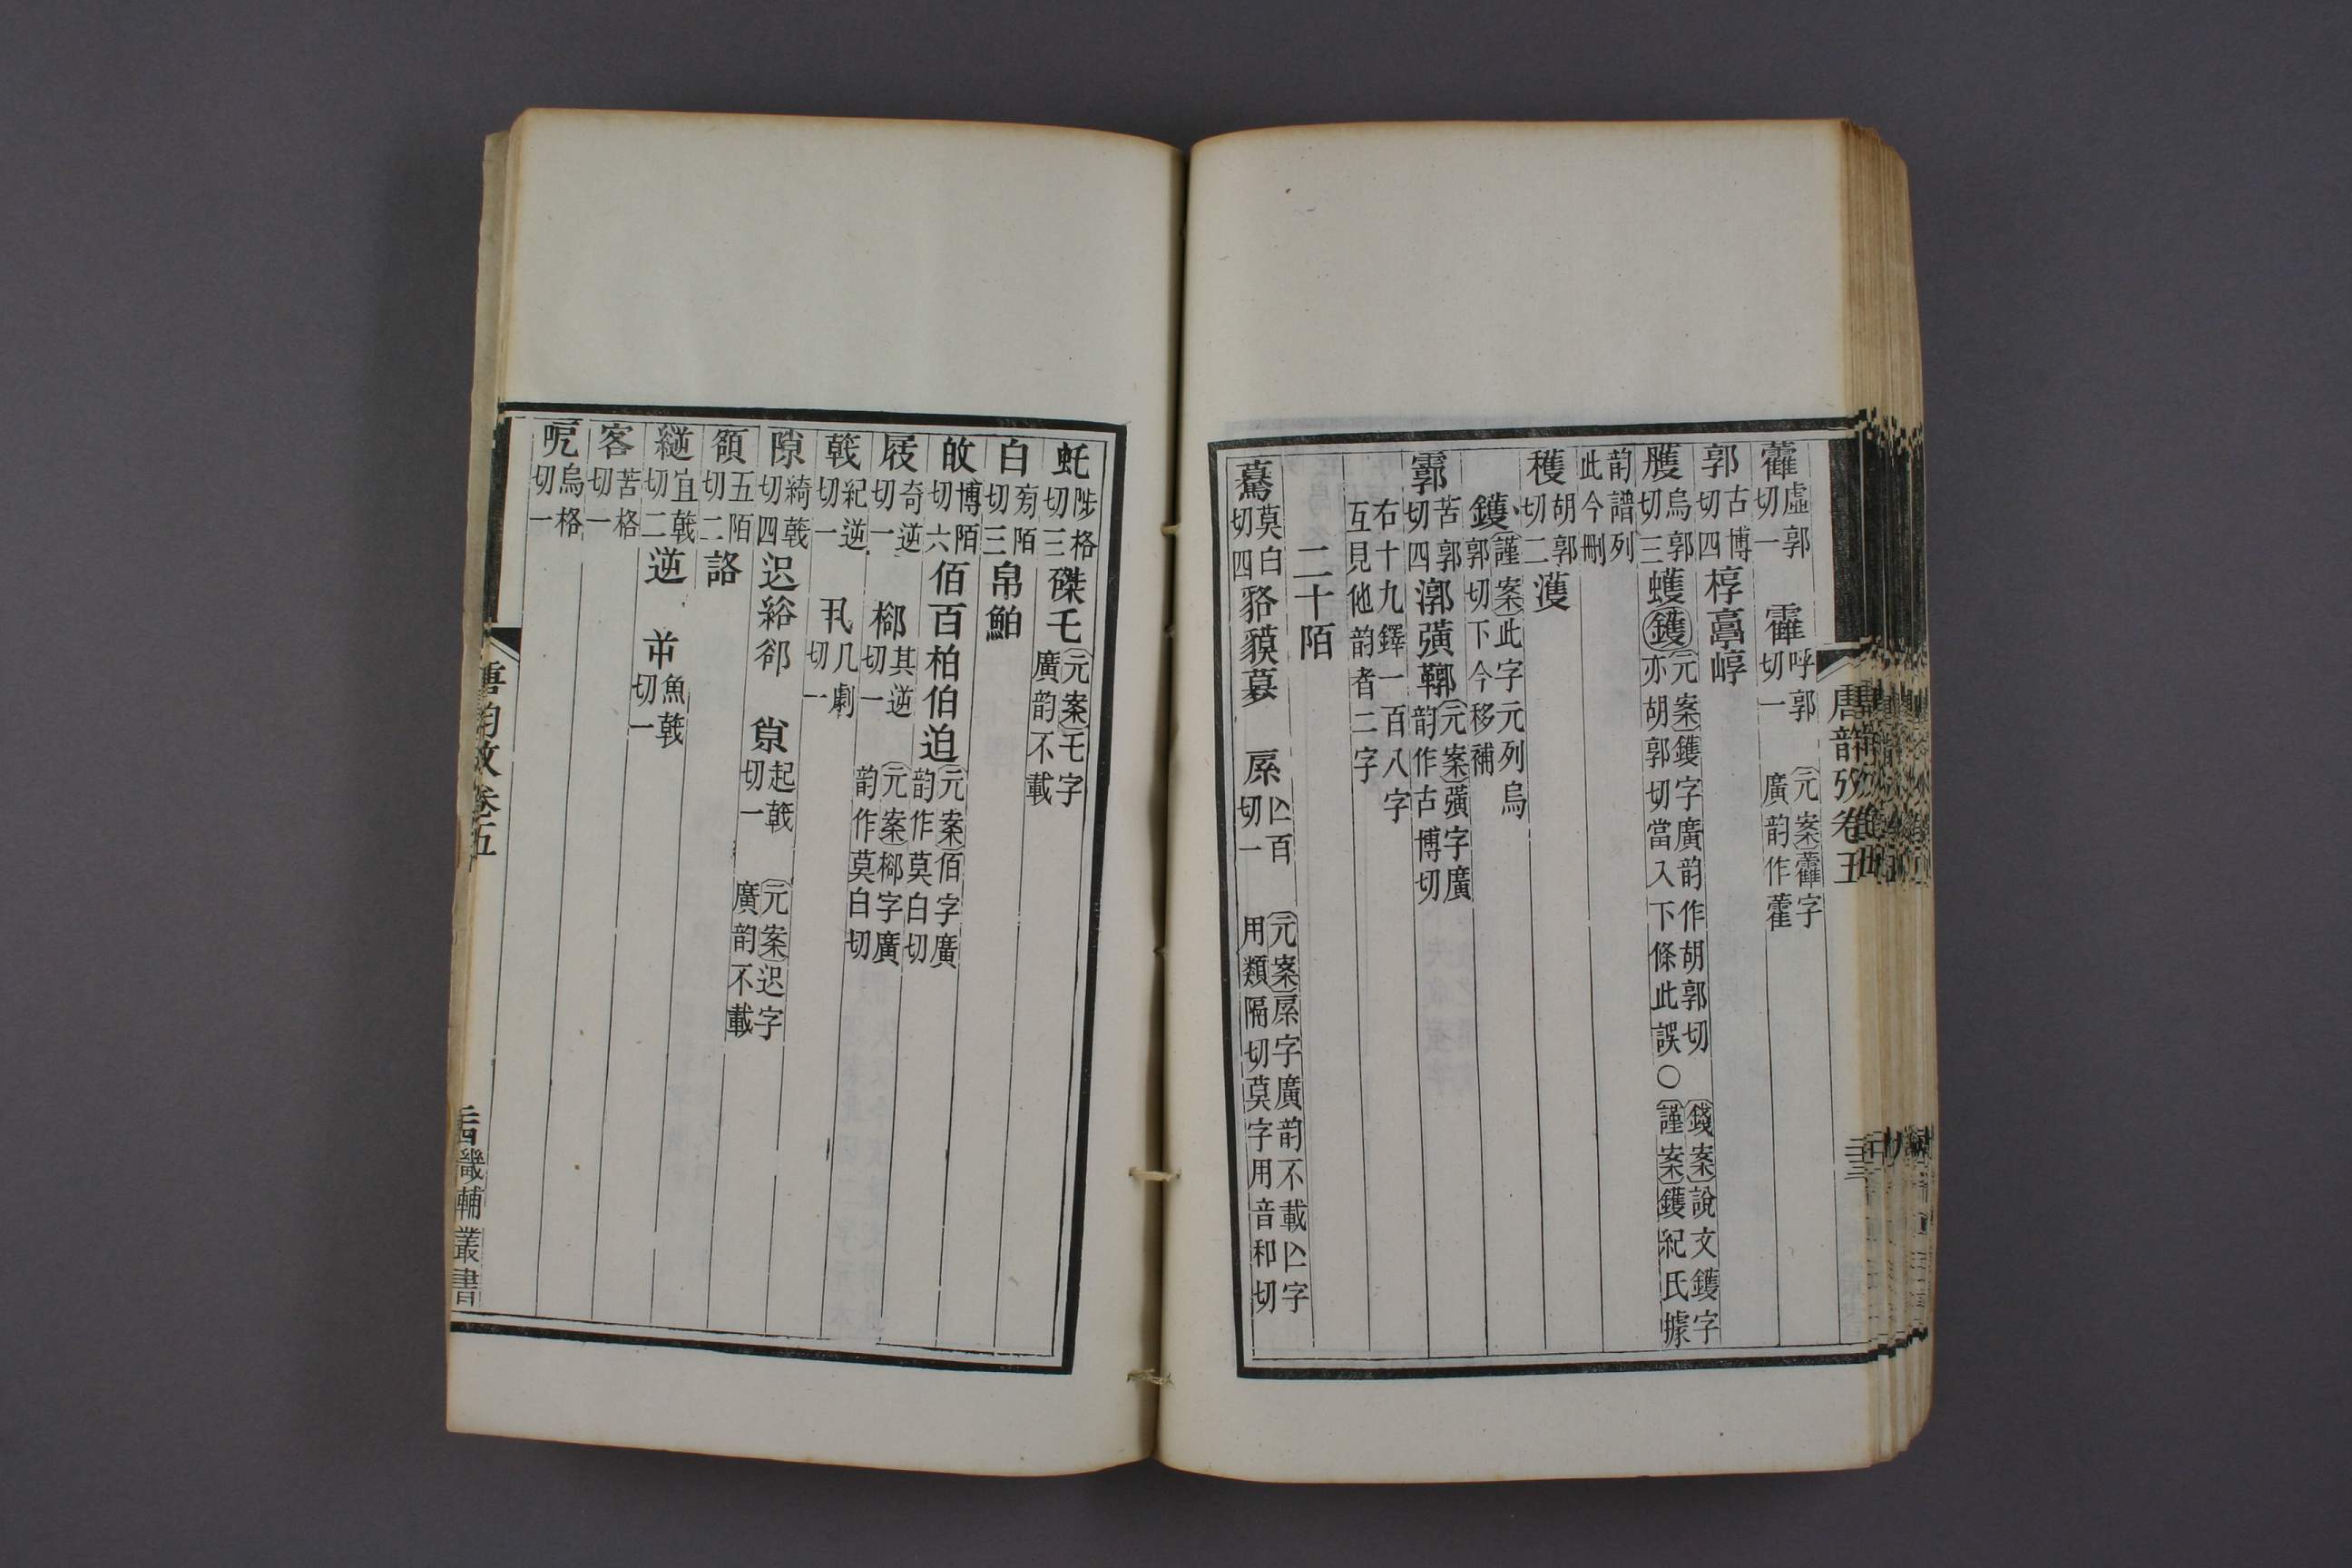 唐韵攷卷五
三三
藿虛郭切一 霍呼郭切一 元案藿字廣韵作藿
郭古博切四椁𩫏崞
臒烏郭切三蠖鑊元案鑊字廣韵作胡郭切亦胡郭切當入下條此誤○錢案說文鑊字謹案鑊紀氏據
韵譜列此今刪
穫胡郭切二濩
鑊謹案此字元列烏郭切下今移補
霩苦郭切四漷彉鞹元案彉字廣韵作古博切
右十九鐸一百八字互見他韵者二字
二十陌
驀莫白切四貉貘募 㞞亡百切一 元案㞞字廣韵不載亡字用類隔切莫字用音和切
虴陟格切三磔乇元案乇字廣韵不載
白㫄陌切三帛鮊
敀博陌切六佰百柏伯迫元案佰字廣韵作莫白切
屐奇逆切一 㮸其逆切一 元案㮸字廣韵作莫白切
戟紀逆切一 丮几劇切一
隙綺戟切四𨒂綌郤 𡭴起戟切一 元案𨒂字廣韵不載
額五陌切二詻
縌宜戟切二逆 屰魚戟切一
客苦格切一
呃烏格切一
唐韵攷卷五
畿輔叢書